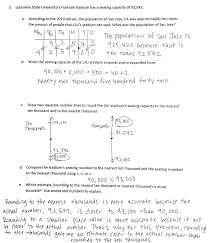 3. Louisiana State University's Football Stadium has a seating capacity of 92,542.
a. According to the 2010 census, the population of San Jose, CA was approximately ten times
the amount of people that LSU's stadium can seat. What was the population of San Jose?
The population of San Jose is
925,420 because that is
ten times 92,542.
b. Write the seating capacity of the LSU stadium in words and in expanded form.
90,000 + 2,000 + 500 + 40 + 2
Ninety two thousand five hundred forty two.
c. Draw two separate number lines to round the LSU stadium's seating capacity to the nearest
ten thousand and to the nearest thousand.
Ten
Thousands
92,542
Thousands
92,542
d. Compare the stadium's seating rounded to the nearest ten thousand and the seating rounded
to the nearest thousand using >, <, or =.
90,000 < 93,000
e. Which estimate (rounding to the nearest ten thousand or nearest thousand) is more
accurate? Use words and numbers to explain.
Rounding to the nearest thousands is more accurate because the
actual number, 92,542, is closer to 93,000 than 90,000.
Rounding to a smaller place value is more accurate because it will
be closer to the actual number. That's why for this problem, rounding
to the thousands gave me an estimate closer to the actual number than
rounding to the ten thousands.